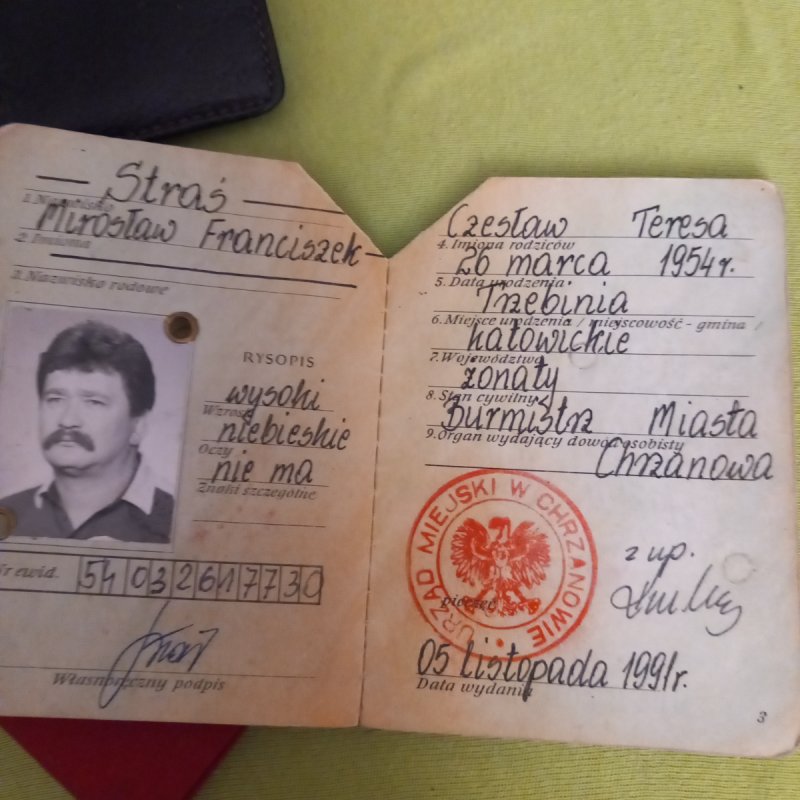 Straś
1. Nazwisko
Mirosław Franciszek
2. Imiona
3. Nazwisko rodowe
RYSOPIS
wysoki
Wzrost
niebieskie
Oczy
nie ma
Znaki szczególne
Nr ewid. 54032617730
Własnoręczny podpis
Czesław Teresa
4. Imiona rodziców
26 marca 1954 r.
5. Data urodzenia
Trzebinia
6. Miejsce urodzenia / miejscowość - gmina /
katowickie
7. Województwo
żonaty
8. Stan cywilny
Burmistrz Miasta
9. Organ wydający dowód osobisty
Chrzanowa
URZĄD MIEJSKI W CHRZANOWIE
pieczęć
z up.
05 listopada 1991r.
Data wydania
3